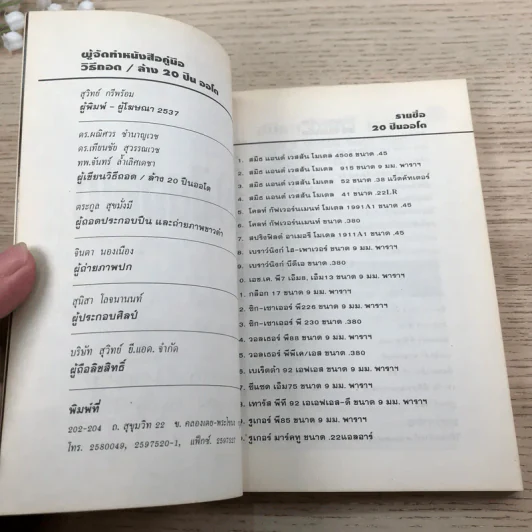 ผู้จัดทำหนังสือคู่มือ
วิธีถอด / ล้าง 20 ปืน ออโต
สุวิทย์ กรีพร้อม
ผู้พิมพ์ - ผู้โฆษณา 2537
ดร.ผณิศวร ชำนาญเวช
ดร.เทียนชัย สุวรรณเวช
ทพ.จันทร์ ล้ำเลิศเดชา
ผู้เขียนวิธีถอด / ล้าง 20 ปืนออโต
ตระกูส สุขมั่งมี
ผู้ถอดประกอบปืน และถ่ายภาพขาวดำ
จินดา นองเนือง
ผู้ถ่ายภาพปก
สุนิสา โลจนานนท์
ผู้ประกอบศิลป์
บริษัท สุวิทย์ ยี.แอด. จำกัด
ผู้ถือลิขสิทธิ์
พิมพ์ที่
202-204 ถ. สุขุมวิท 22 ข. คลองเตย-พระโขนง
โทร. 2580049, 2597520-1, แฟ็กซ์.
รายชื่อ
20 ปืนออโต
1. สมิธ แอนด์ เวสสัน โมเดล 4506 ขนาด .45
สมิธ แอนด์ เวสสัน โมเดล 915 ขนาด 9 มม. พาราฯ
สมิธ แอนด์ เวสสัน โมเดล 52 ขนาด .38 แว็ดคัทเตอร์
สมิธ แอนด์ เวสสัน โมเดล 41 ขนาด .22LR
โคลท์ กัฟเวอร์นเมนท์ โมเดล 1991A1 ขนาด .45
โคลท์ กัฟเวอร์นเมนท์ ขนาด .380
สปริงฟิลด์ อาเมอรี โมเดล 1911A1 ขนาด .45
เบราว์นิงก์ ไฮ-เพาเวอร์ ขนาด 9 มม. พาราฯ
เบราว์นิงก์ บีดีเอ ขนาด .380
เอช.เค. พี7 เอ็ม8, เอ็ม13 ขนาด 9 มม. พาราฯ
กล็อก 17 ขนาด 9 มม. พาราฯ
ซิก-เซาเออร์ พี226 ขนาด 9 มม. พาราฯ
ซิก-เซาเออร์ พี 230 ขนาด .380
วอลเธอร์ พี88 ขนาด 9 มม. พาราฯ
วอลเธอร์ พีพีเค/เอส ขนาด .380
เบเร็ตต้า 92 เอฟเอส ขนาด 9 มม. พาราฯ
ซีแซด เอ็ม75 ขนาด 9 มม. พาราฯ
เทารัส พีที 92 เอเอฟเอส-ดี ขนาด 9 มม. พาราฯ
รูเกอร์ พี85 ขนาด 9 มม. พาราฯ
รูเกอร์ มาร์คทู ขนาด .22แอลอาร์